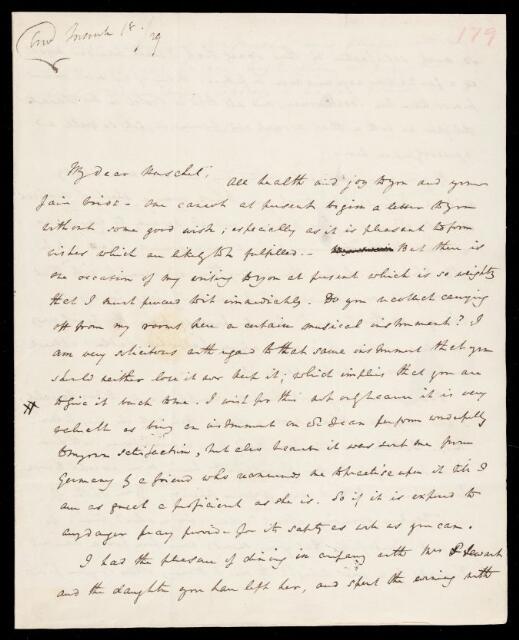 179
My dear Herschel,
All health and joy to you and your
fair bride – one cannot at present begin a letter to you
without some good wish; especially as it is pleasant to form
wishes which are likely to be fulfilled. – But there is
one occasion of my writing to you at present which is so weighty
that I must proceed to it immediately. Do you recollect carrying
off from my rooms here a certain musical instrument? I
am very solicitous with regard to that same instrument that you
should neither lose it nor keep it; which implies that you are
to give it back to me. I wish for this not only because it is very
valuable as being an instrument on which I can perform wonderfully
to my own satisfaction, but also because it was sent me from
Germany by a friend who recommends me to practise upon it till I
am as great a proficient as she is. So if it is exposed to
any danger pray provide for its safety as well as you can.
I had the pleasure of dining in company with Mrs Stewart
and the daughter you have left her, and spent the evening with